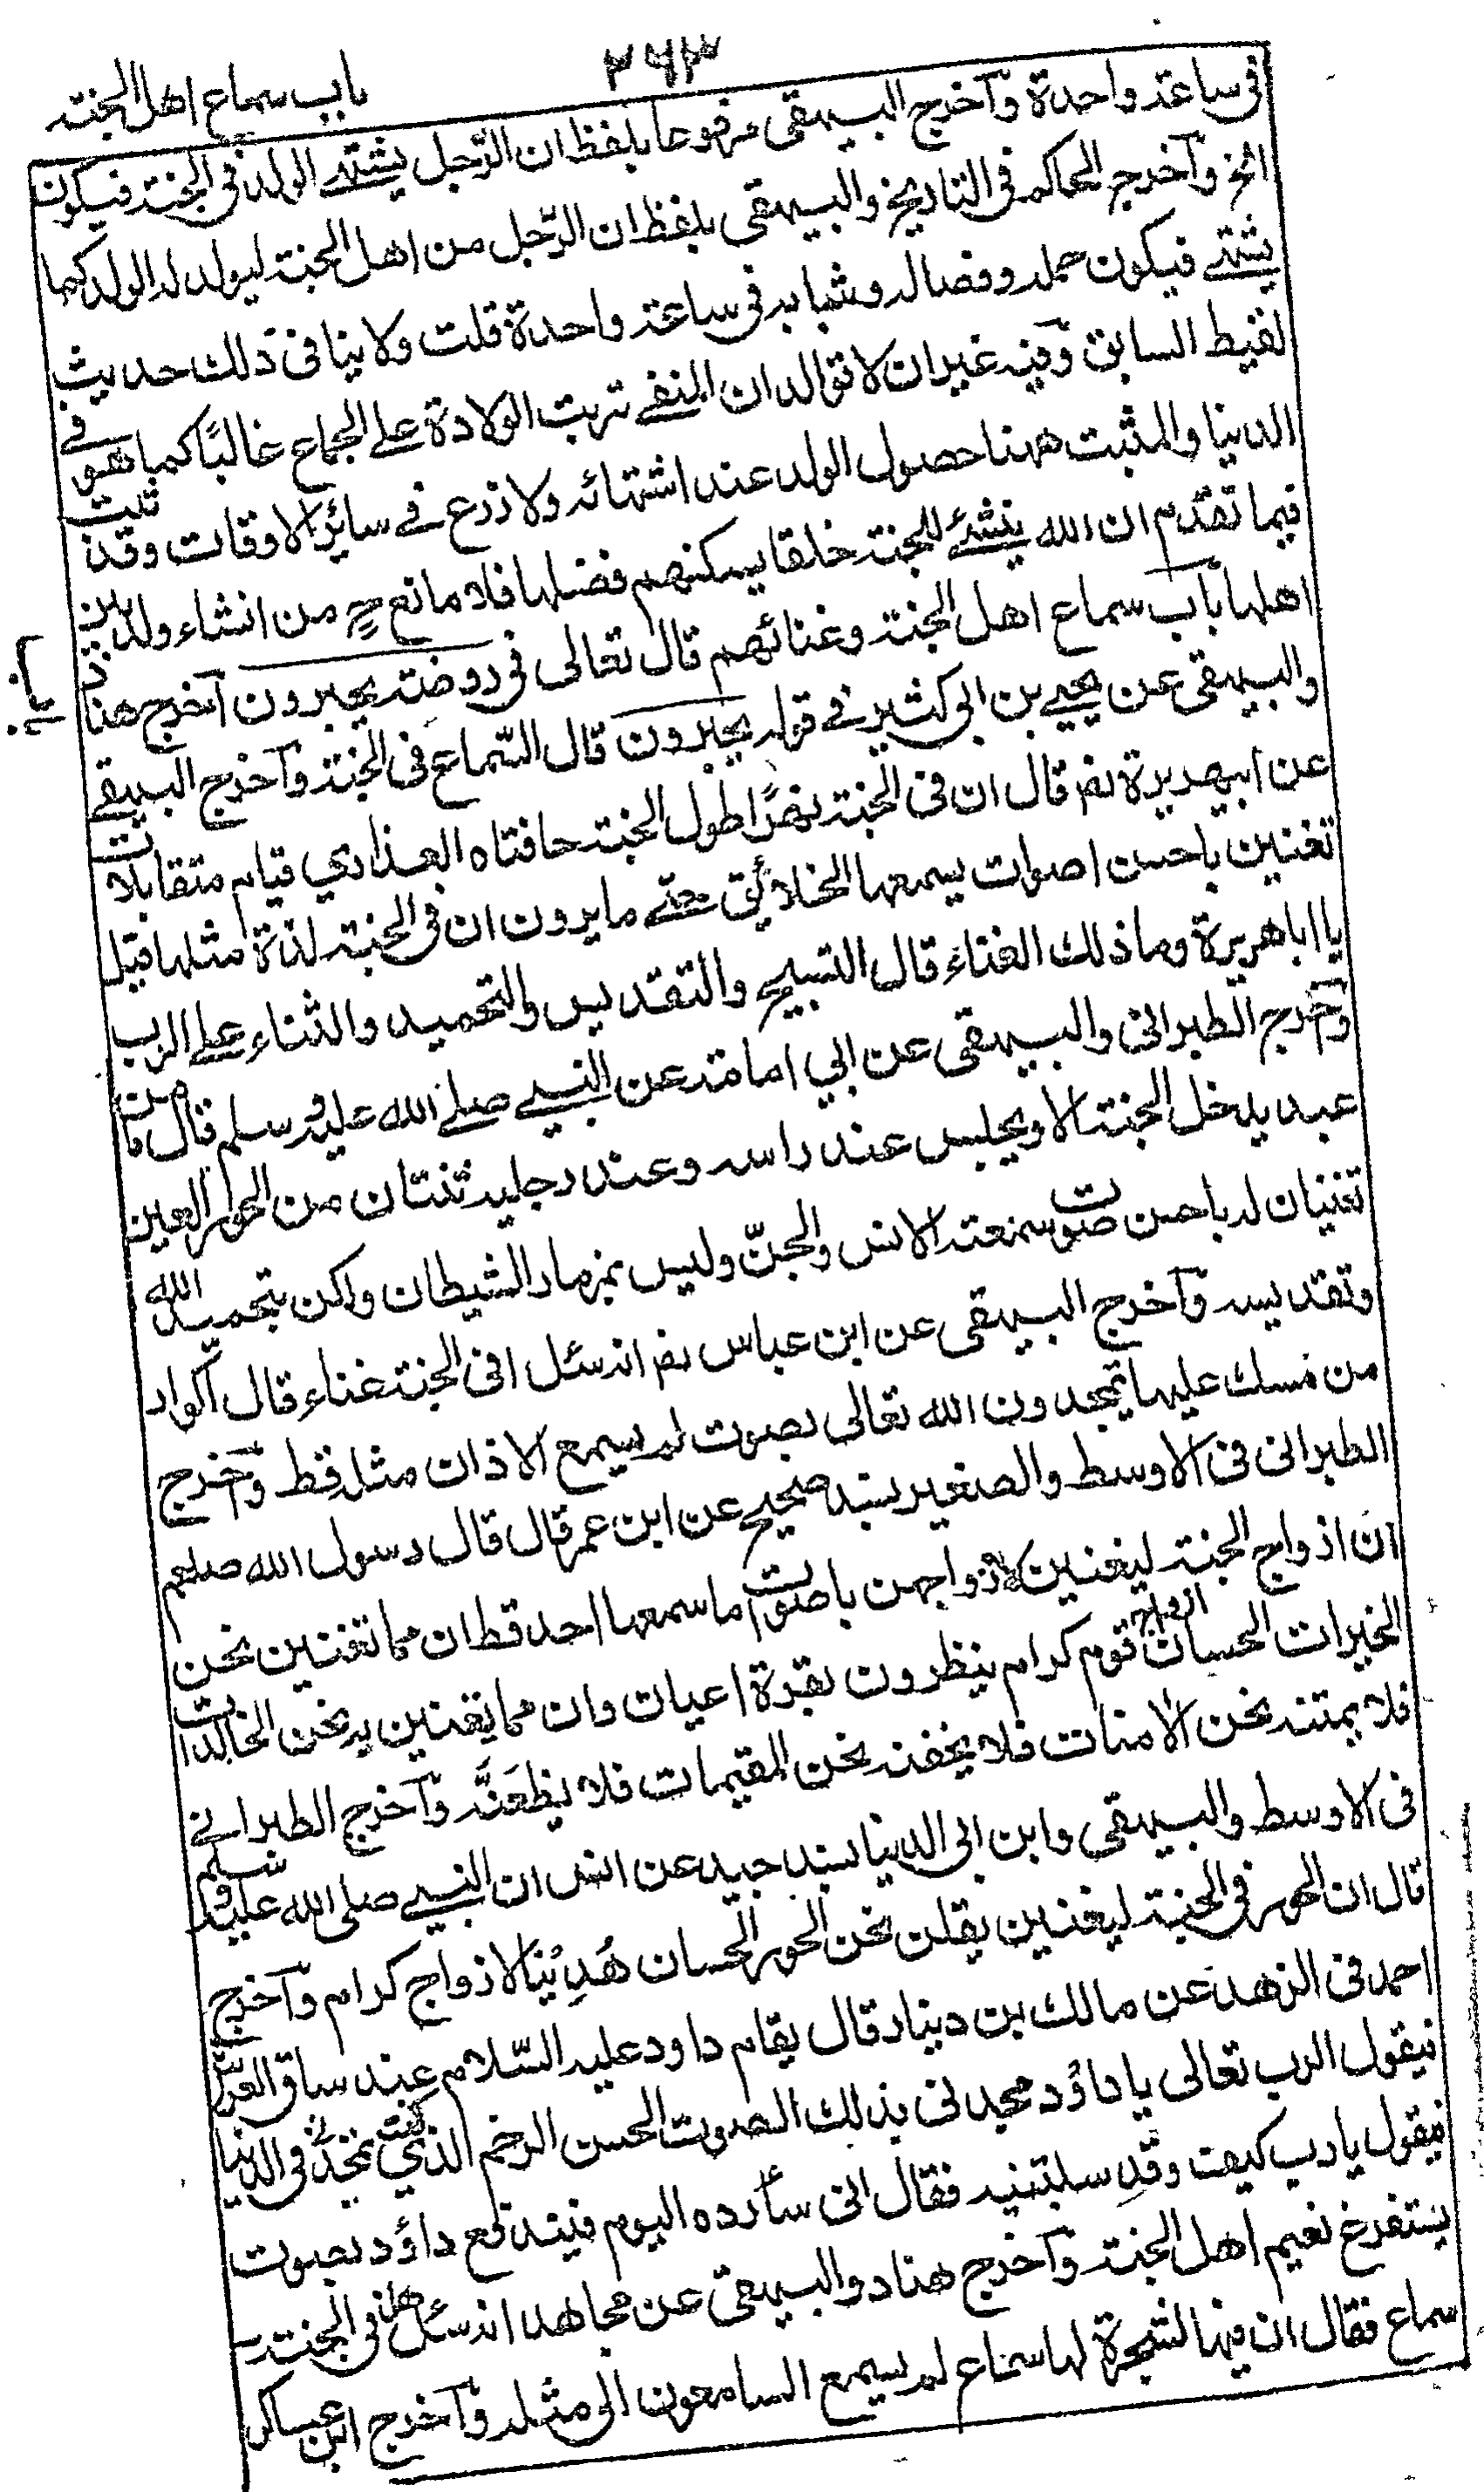 باب سماع اهل الجنة
٢٦٣
فى ساعة واحدة وآخرج البيهقى مرفوعا بلفظ ان الرّجل يشتهے الولد فى الجنة فيكون
الخ وآخرج الحاكم فى التاريخ والبيهقى بلفظ ان الرّجل من اهل الجنة ليولد له الولد كما
يشتهے فيكون حمله وفصاله وشبابه فى ساعة واحدة قلت ولا ينافى ذلك حديث
لقيط السابق وفيه غير ان لا توالد ان المنفے ترتب الولادة علے الجماع غالبًا كما هو فے
الدنيا والمثبت ههنا حصول الولد عند اشتهائه ولا ذرع فے سائر الاوقات وقد ثبت
فيما تقدم ان الله ينشئ للجنة خلقا يسكنهم فضلها فلا مانع ح من انشاء ولد بين
اهلها بآب سماع اهل الجنة وغنائهم قال تعالى فى روضة يحبرون آخرج هناد
والبيهقى عن يحيے بن ابى كثير فے قوله يحبرون قال السّماع فى الجنة وآخرج البيهقے
عن ابيهريرة رض قال ان فى الجنة نهرًا طول الجنة حافتاه العذاري قيام متقابلات
تغنين باحسن اصوات يسمعها الخلائق حتے ما يرون ان فى الجنة لذة مثلها قيل
يا ابا هريرة وما ذلك الغناء قال التسبيح والتقديس والتحميد والثناء علے الرب
وآخرج الطبرانى والبيهقى عن ابي امامة عن النبے صلے الله عليه وسلم قال ما من
عبد يدخل الجنة الا ويجلس عند راسه وعند رجليه ثنتان من الحور العين
تغنيان له باحسن صوت سمعته الانس والجنّ وليس بمزمار الشيطان ولكن بتحميد الله
وتقديسه وآخرج البيهقى عن ابن عباس رض انه سئل افى الجنة غناء قال اكواد
من مسك عليها يمجدون الله تعالى بصوت لم يسمع الاذان مثله قط وآخرج
الطبرانى فى الاوسط والصغير بسند صحيح عن ابن عمر قال قال رسول الله صلعم
ان ازواج الجنة ليغنين لازواجهن باصوات ما سمعها احد قط ان مما تغنين نحن
الخيرات الحسان ازواج قوم كرام ينظرون بقرة اعيان وان مما يغنين به نحن الخالدات
فلا يمتنه نحن الامنات فلا يخفنه نحن المقيمات فلا يظعَنَّه وآخرج الطبرانے
فى الاوسط والبيهقى وابن ابى الدنيا بسند جيد عن انس ان النبے صلى الله عليه وسلم
قال ان الحور فى الجنة ليغنين يقلن نحن الحور الحسان هُدِيْنا لازواج كرام وآخرج
احمد فى الزهد عن مالك بن دينار قال يقام داود عليه السّلام عند ساق العرش
فيقول الرب تعالى يا داؤد مجدنى بذلك الصوت الحسن الرخيم الذي كنت تمجدنى فى الدنيا
فيقول يا رب كيف وقد سلبتنيه فقال انى سأرده اليوم فيندفع داؤد بصوت
يستفرغ نعيم اهل الجنة وآخرج هناد والبيهقى عن مجاهد انه سئل هل فى الجنة
سماع فقال ان فيها لشجرة لها سماع لم يسمع السامعون الى مثله وآخرج ابن عساكر